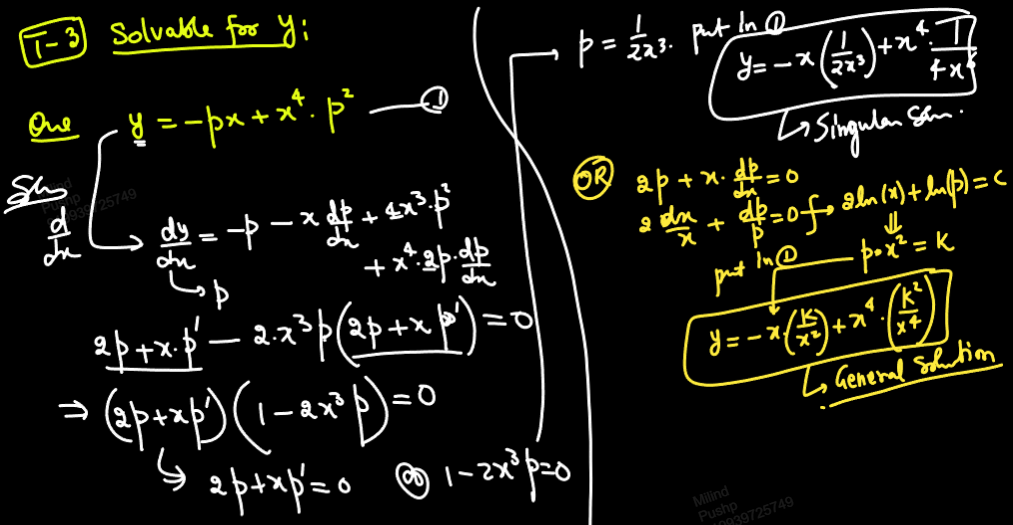 T-3 Solvable for y:
One y = -px + x⁴·p² —①
Soln
d/dx → dy/dx = -p - x dp/dx + 4x³·p²
+ x⁴·2p·dp/dx
→ p
2p+x·p' - 2·x³p(2p+xp') = 0
⇒ (2p+xp')(1-2x³p) = 0
↳ 2p+xp'=0 OR 1-2x³p=0
→ p = 1/2x³. put in ①
y = -x(1/2x³) + x⁴·1/4x⁶
↳ Singular Soln.
OR 2p + x·dp/dx = 0
2 dx/x + dp/p = 0 ∫→ 2ln(x)+ln(p)=c
⇓
put in ① p·x² = K
y = -x·(K/x²) + x⁴·(K²/x⁴)
↳ General Solution
Milind
Pushp
9939725749
Milind
Pushp
9939725749